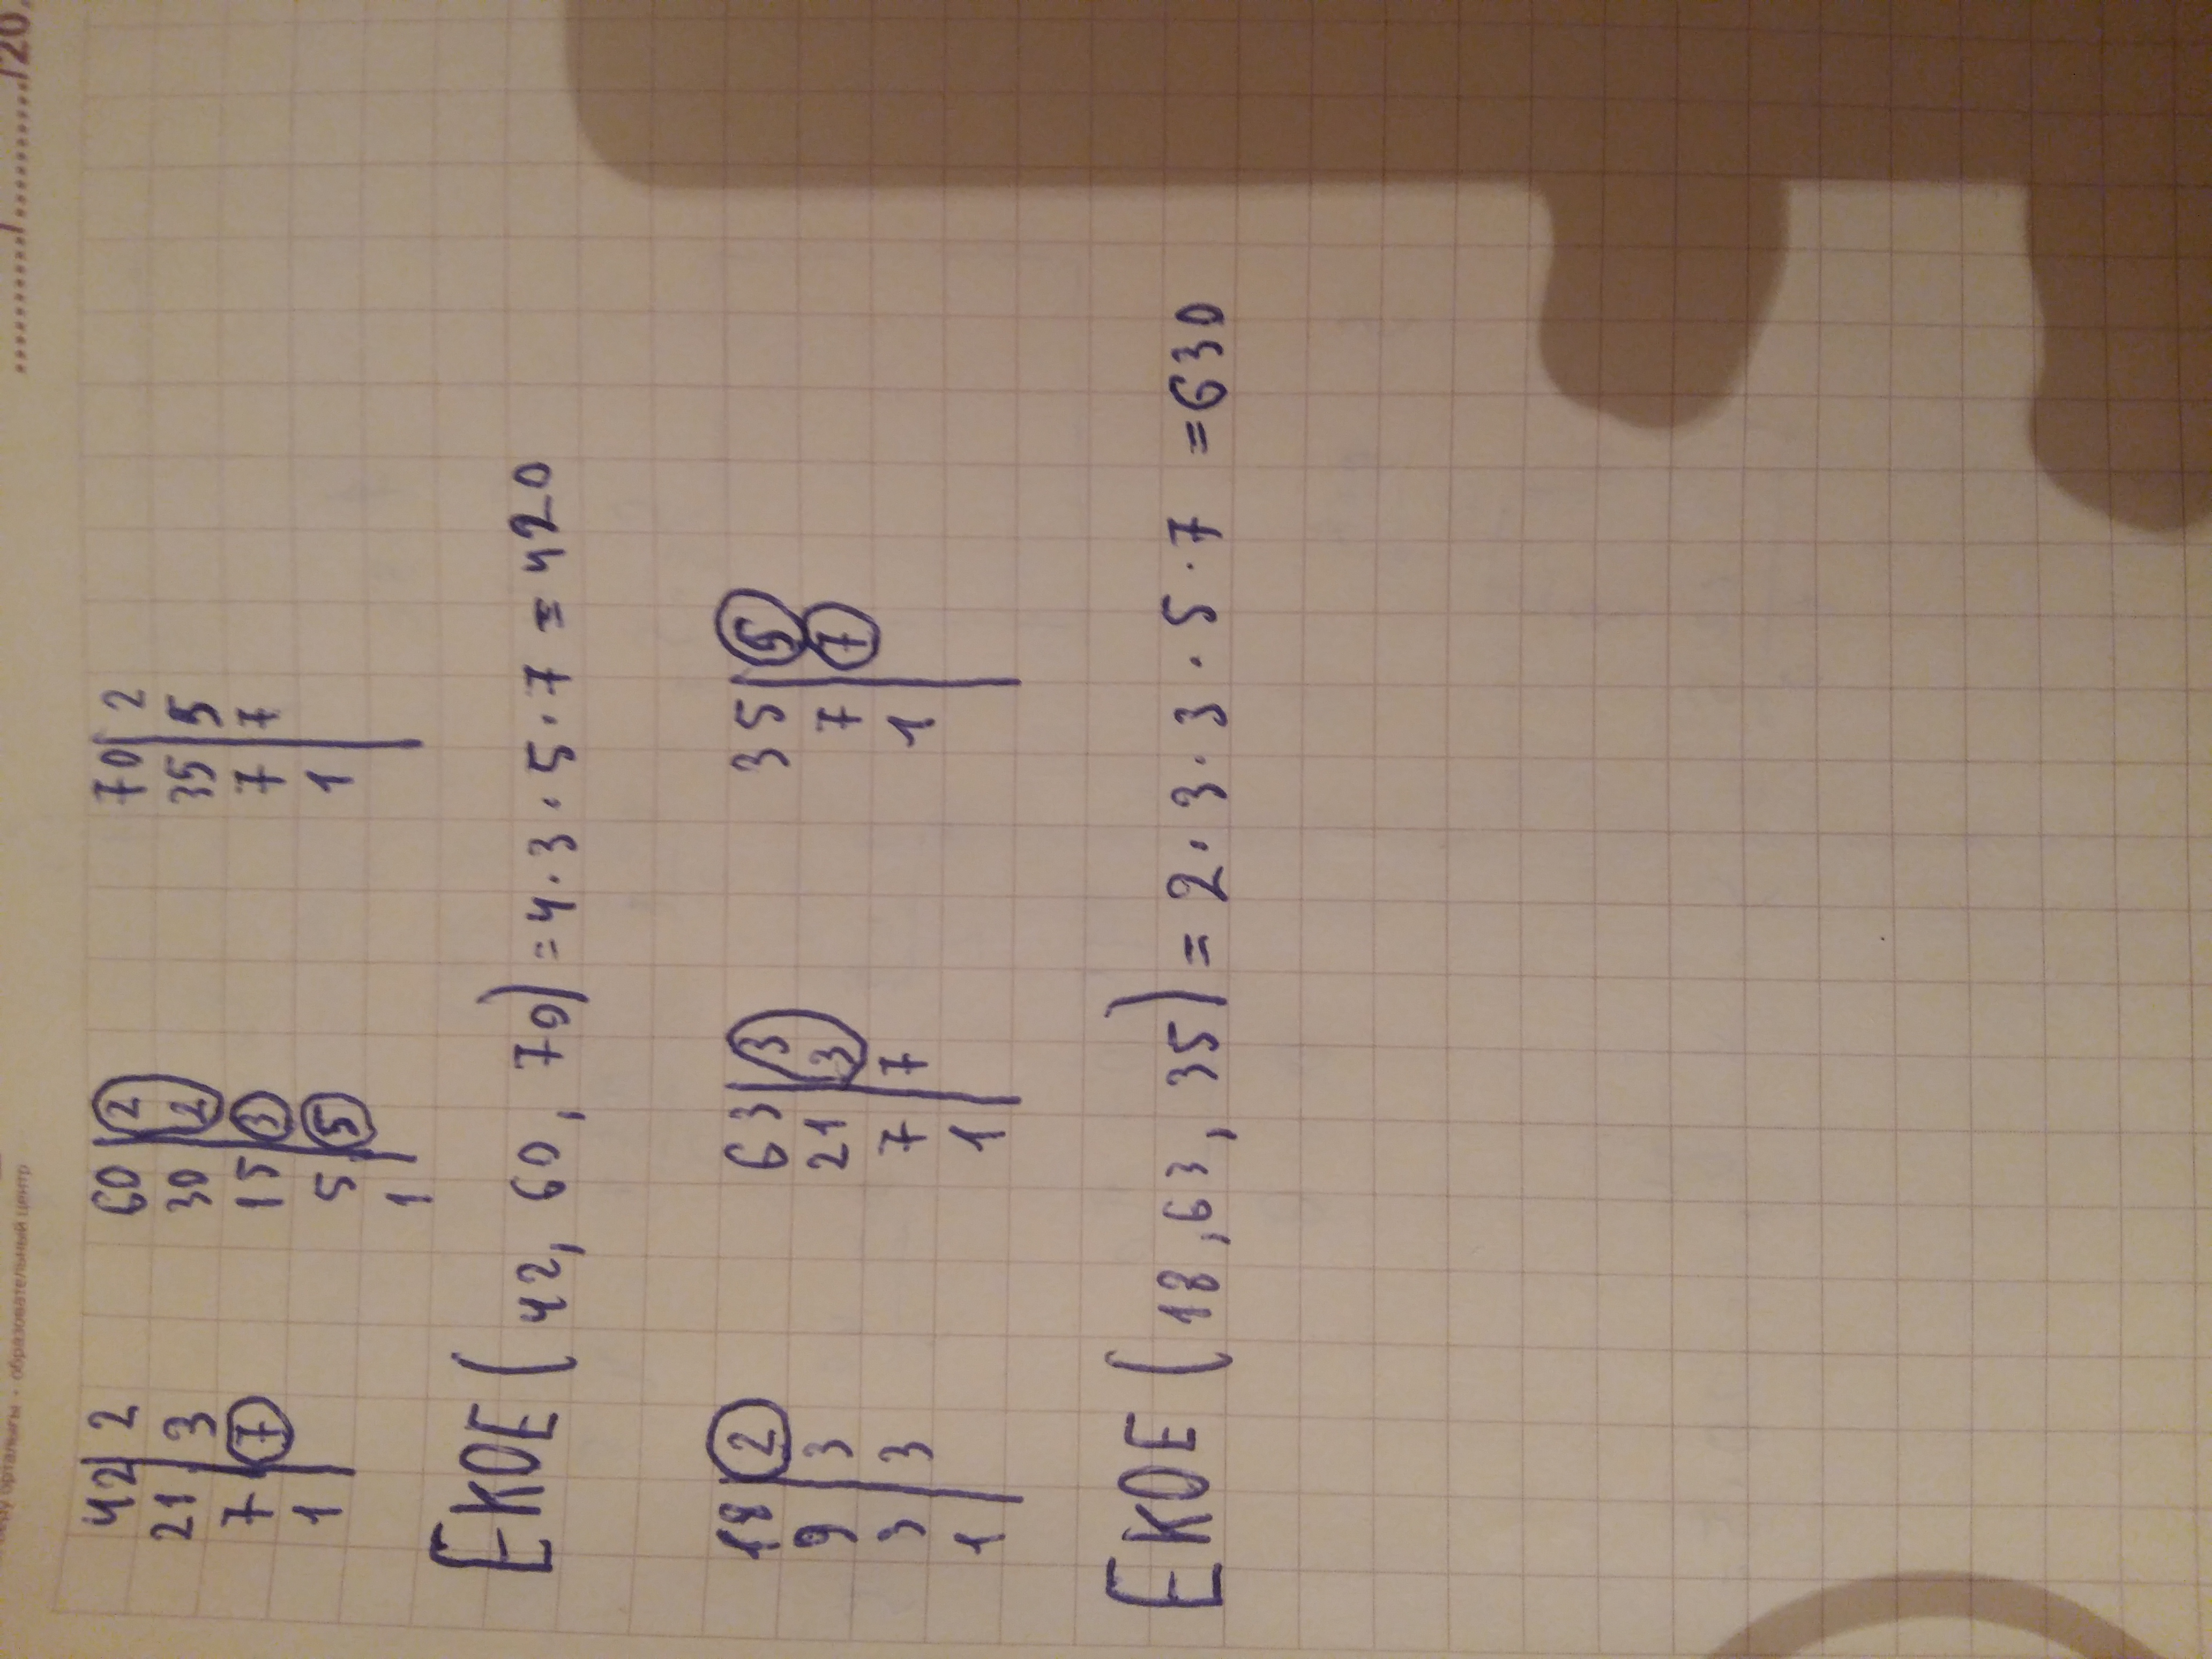 / /20
орталығы • образовательный центр
42 | 2 60 | 2 70 | 2
21 | 3 30 | 2 35 | 5
7 | 7 15 | 3 7 | 7
1 | 5 | 5 1 |
1 |
ЕКОЕ (42, 60, 70) = 4 · 3 · 5 · 7 = 420
18 | 2 63 | 3 35 | 5
9 | 3 21 | 3 7 | 7
3 | 3 7 | 7 1 |
1 | 1 |
ЕКОЕ (18, 63, 35) = 2 · 3 · 3 · 5 · 7 = 630